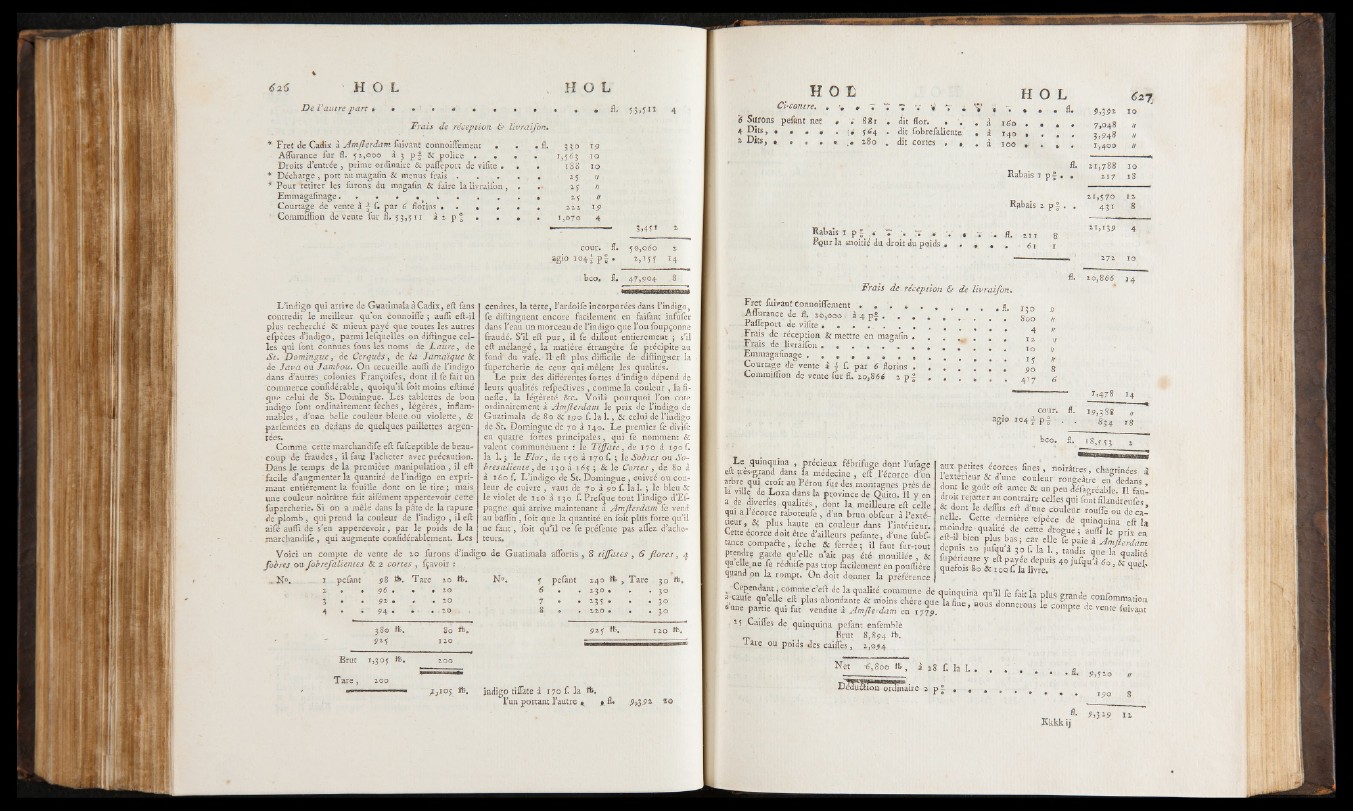 626 HOL HOL
De l'autre part . . . . . . . . . . . . fl. 53,511 4
Frais de réception & livraison.
* Fret de Cadix à Amsterdam suivant connoissement . . . fl. 330 19
Assurance sur fl. 52,000 à 3 p 0/0 & police . . . . 1,563 10
Droits d'entrée, prime ordinaire & passeport de visite . . . 188 10
* Décharge, port au magasin & menus frais . . . . . 25 "
* Pour retirer les surons du magasin & faire la livraison, . . 25 "
Emmagasinage. . . . . . . . . . . 25 "
Courtage de vente à 3/4 f. par 6 florins . . . . . 222 19
Commission de vente sur fl. 53,511 à 2 p 0/0 . . . . 1,070 4
3,451 2
cour. fl. 50,060 2
agio 104 1/2 p 0/0 . 2,155 14
bco. fl. 47,904 8
L'indigo qui arrive de Guatimala à Cadix, est sans
contredit le meilleur qu'on connoisse ; aussi est-il
plus recherché & mieux payé que toutes les autres
espèces d'indigo, parmi lesquelles on distingue cel-
les qui sont connues sous les noms de Laure, de
St. Domingue, de Cerquès, de la Jamaïque &
de Java ou Jambou. On recueille aussi de l'indigo
dans d'autres colonies Françoises, dont il se fait un
commerce considérable, quoiqu'il soit moins estimé
que celui de St. Domingue. Les tablettes de bon
indigo sont ordinairement sèches, légères, inflam-
mables, d'une belle couleur bleue ou violette, &
parsemées en dedans de quelques paillettes argen-
tées.
Comme cette marchandise est susceptible de beau-
coup de fraudes, il faut l'acheter avec précaution.
Dans le temps de la première manipulation, il est
facile d'augmenter la quantité de l'indigo en expri-
mant entièrement la feuille dont on le tire ; mais
une couleur noirâtre fait aisément appercevoir cette
supercherie. Si on a mêlé dans la pâte de la rapure
de plomb, qui prend la couleur de l'indigo, il est
aisé aussi de s'en appercevoir, par le poids de la
marchandise, qui augmente considérablement. Les
cendres, la terre, l'ardoise incorporées dans l'indigo,
se distinguent encore facilement en faisant infuser
dans l'eau un morceau de l'indigo que l'on soupçonne
fraudé. S'il est pur, il se dissout entierement ; s'il
est mélangé, la matière étrangère se précipite au
fond du vase. Il est plus difficile de distinguer la
supercherie de ceux qui mêlent les qualités.
Le prix des différentes sortes d'indigo dépend de
leurs qualités respectives, comme la couleur, la fi-
nesse, la légéreté &c. Voilà pourquoi l'on cote
ordinairement à Amsterdam le prix de l'indigo de
Guatimala de 80 & 190 f. la l., & celui de l'indigo
de St. Domingue de 70 à 140. Le premier se divise
en quatre sortes principales, qui se nomment &
valent communément : le Tissate, de 170 à 190 f.
la l. ; le Flor, de 150 à 170 f. ; le Sobres ou So-
bresaliente, de 130 à 165 ; & le Cortes, de 80 à
à 160 f. L'indigo de St. Domingue, cuivré ou cou-
leur de cuivre, vaut de 70 à 90 f. la l. ; le bleu &
le violet de 120 à 130 f. Presque tout l'indigo d'Es-
pagne qui arrive maintenant à Amsterdam se vend
au bassin, soit que la quantité en soit plus forte qu'il
ne faut, soit qu'il ne se présente pas assez d'ache-
teurs.
Voici un compte de vente de 20 surons d'indigo de Guatimala assortis, 8 tissates, 6 flores, 4
sobres ou sobresalientes & 2 cortes, sçavoir :
No. 1 pesant 98 lb. Tare 20 lb. No. 5 pesant 240 lb, Tare 30 lb.
2 . . 96 . . . 20 6 . . 230 . . . 30
3 . . 92 . . . 20 7 . . 235 . . . 30
4 . . 94 . . . 20 8 . . 220 . . . 30
380 lb. 80 lb. 925 lb. 120 lb.
925 120
Brut 1,305 lb. 200
Tare, 200
1,105 lb. indigo tissate à 170 f. la lb.
l'un portant l'autre . . fl. 9,392 10
HOL HOL 627
Ci-contre. . . . . . . . . . . . . fl. 9,392 10
6 Surons pesant net . . 881 . dit flor. . . . à 160 . . . . 7,048 "
4 Dits, . . . . . . 564 . dit sobresaliente . à 140 . . . . 3,948 "
2 Dits, . . . . . . 280 . dit cortes . . . à 100 . . . . 1,400 "
fl. 21,788 10
Rabais 1 p 0/0 . . 217 18
21,570 12
Rabais 2 p 0/0 . . 431 8
21,139 4
Rabais 1 p 0/0 . . . . . . . . fl. 211 8
Pour la moitié du droit du poids . . . . . 61 1
272 10
fl. 20,866 14
Frais de réception & de livraison.
Fret suivant connoissement . . . . . . . . fl. 130 "
Assurance de fl. 20,000 à 4 p 0/0 . . . . . . . 800 "
Passeport de visite . . . . . . . . . . 4 "
Frais de réception & mettre en magasin . . . . . . 12 "
Frais de livraison . . . . . . . . . . 10 "
Emmagasinage . . . . . . . . . . . 15 "
Courtage de vente à f. par 6 florins . . . . . . 90 8
Commission de vente sur fl. 20,866 2 p 0/0 . . . . . 417 6
1,478 14
cour. fl. 19,388 "
agio 104 1/2 p 0/0 . . 834 18
bco. fl. 18,553 2
Le quinquina, précieux fébrifuge dont l'usage
est très-grand dans la médecine, est l'écorce d'un
arbre qui croît au Pérou sur des montagnes près de
la ville de Loxa dans la province de Quito. Il y en
a de diverses qualités, dont la meilleure est celle
qui a l'écorce raboteuse, d'un brun obscur à l'exté-
rieur, & plus haute en couleur dans l'intérieur.
Cette écorce doit être d'ailleurs pesante, d'une subs-
tance compacte, sèche & serrée ; il faut sur-tout
prendre garde qu'elle n'ait pas été mouillée, &
qu'elle ne se réduise pas trop facilement en poussière
quand on la rompt. On doit donner la préférence
aux petites écorces fines, noirâtres, chagrinées à
l'extérieur & d'une couleur rougeâtre en dedans,
dont le goût est amer & un peu désagréable. Il fau-
droit rejetter au contraire celles qui sont filandreuses,
& dont le dessus est d'une couleur rousse ou de ca-
nelle. Cette dernière espèce de quinquina est la
moindre qualité de cette drogue ; aussi le prix en
est-il bien plus bas ; car elle se paie à Amsterdam
depuis 20 jusqu'à 30 f. la l., tandis que la qualité
supérieure y est payée depuis 40 jusqu'à 60, & quel-
quefois 80 & 100 f. la livre.
Cependant, comme c'est de la qualité commune de quinquina qu'il se fait la plus grande consommation
à cause qu'elle est plus abondante & moins chère que la fine, nous donnerons le compte de vente suivant
d'une partie qui fut vendue à Amsterdam en 1779.
25 Caisses de quinquina pesant ensemble
Brut 8,894 lb.
Tare ou poids des caisses, 2,094
Net 6,800 lb, à 28 f. la l. . . . . . . . fl. 9,520 "
Déduction ordinaire 2 p 0/0 . . . . . . . . . 190 8
fl. 9,329 12
Kkkk ij